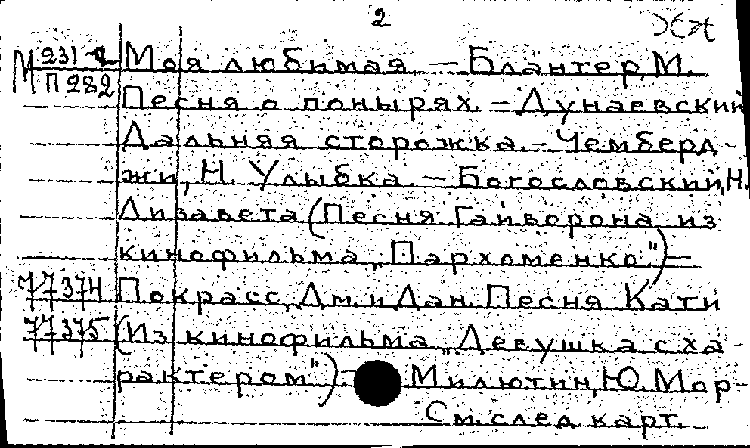 2
М 231-2 Моя любимая. – Блантер, М.
П 282 Песня о понырях. – Дунаевский
Дальняя сторожка. – Чемберд-
жи, Н. Улыбка. – Богословский, Н.
Лизавета (Песня Гайворона из
кинофильма „Пархоменко") –
77374 Покрасс, Дм. и Дан. Песня Кати
77375 (Из кинофильма „Девушка с ха-
рактером") – Милютин, Ю. Мор-
См. след. карт.